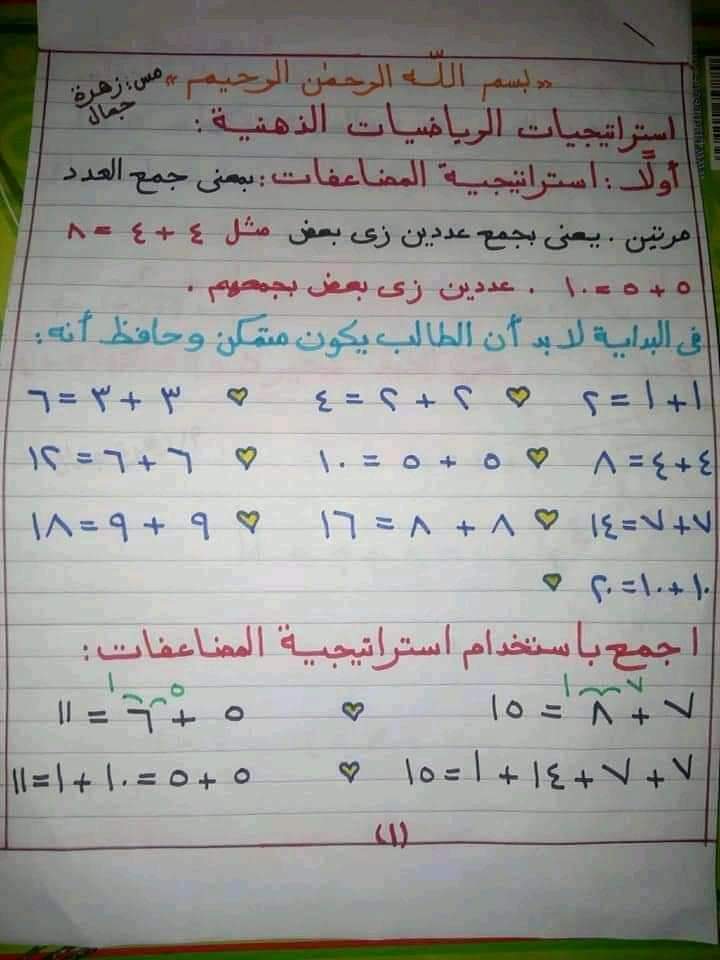 «بسم اللّه الرحمٰن الرحيم»
مس: زهرة
جمال
استراتيجيات الرياضيات الذهنية :
أولًا : استراتيجية المضاعفات : بمعنى جمع العدد
مرتين . يعنى بجمع عددين زى بعض مثل ٤ + ٤ = ٨
٥ + ٥ = ١٠ . عددين زى بعض بجمعهم .
فى البداية لا بد أن الطالب يكون متمكن وحافظ أنه :
١ + ١ = ٢ ٢ + ٢ = ٤ ٣ + ٣ = ٦
٤ + ٤ = ٨ ٥ + ٥ = ١٠ ٦ + ٦ = ١٢
٧ + ٧ = ١٤ ٨ + ٨ = ١٦ ٩ + ٩ = ١٨
١٠ + ١٠ = ٢٠
اجمع باستخدام استراتيجية المضاعفات :
٧ ١ ٥ ١
٧ + ٨ = ١٥ ٥ + ٦ = ١١
٧ + ٧ + ١٤ + ١ = ١٥ ٥ + ٥ = ١٠ + ١ = ١١
(١)